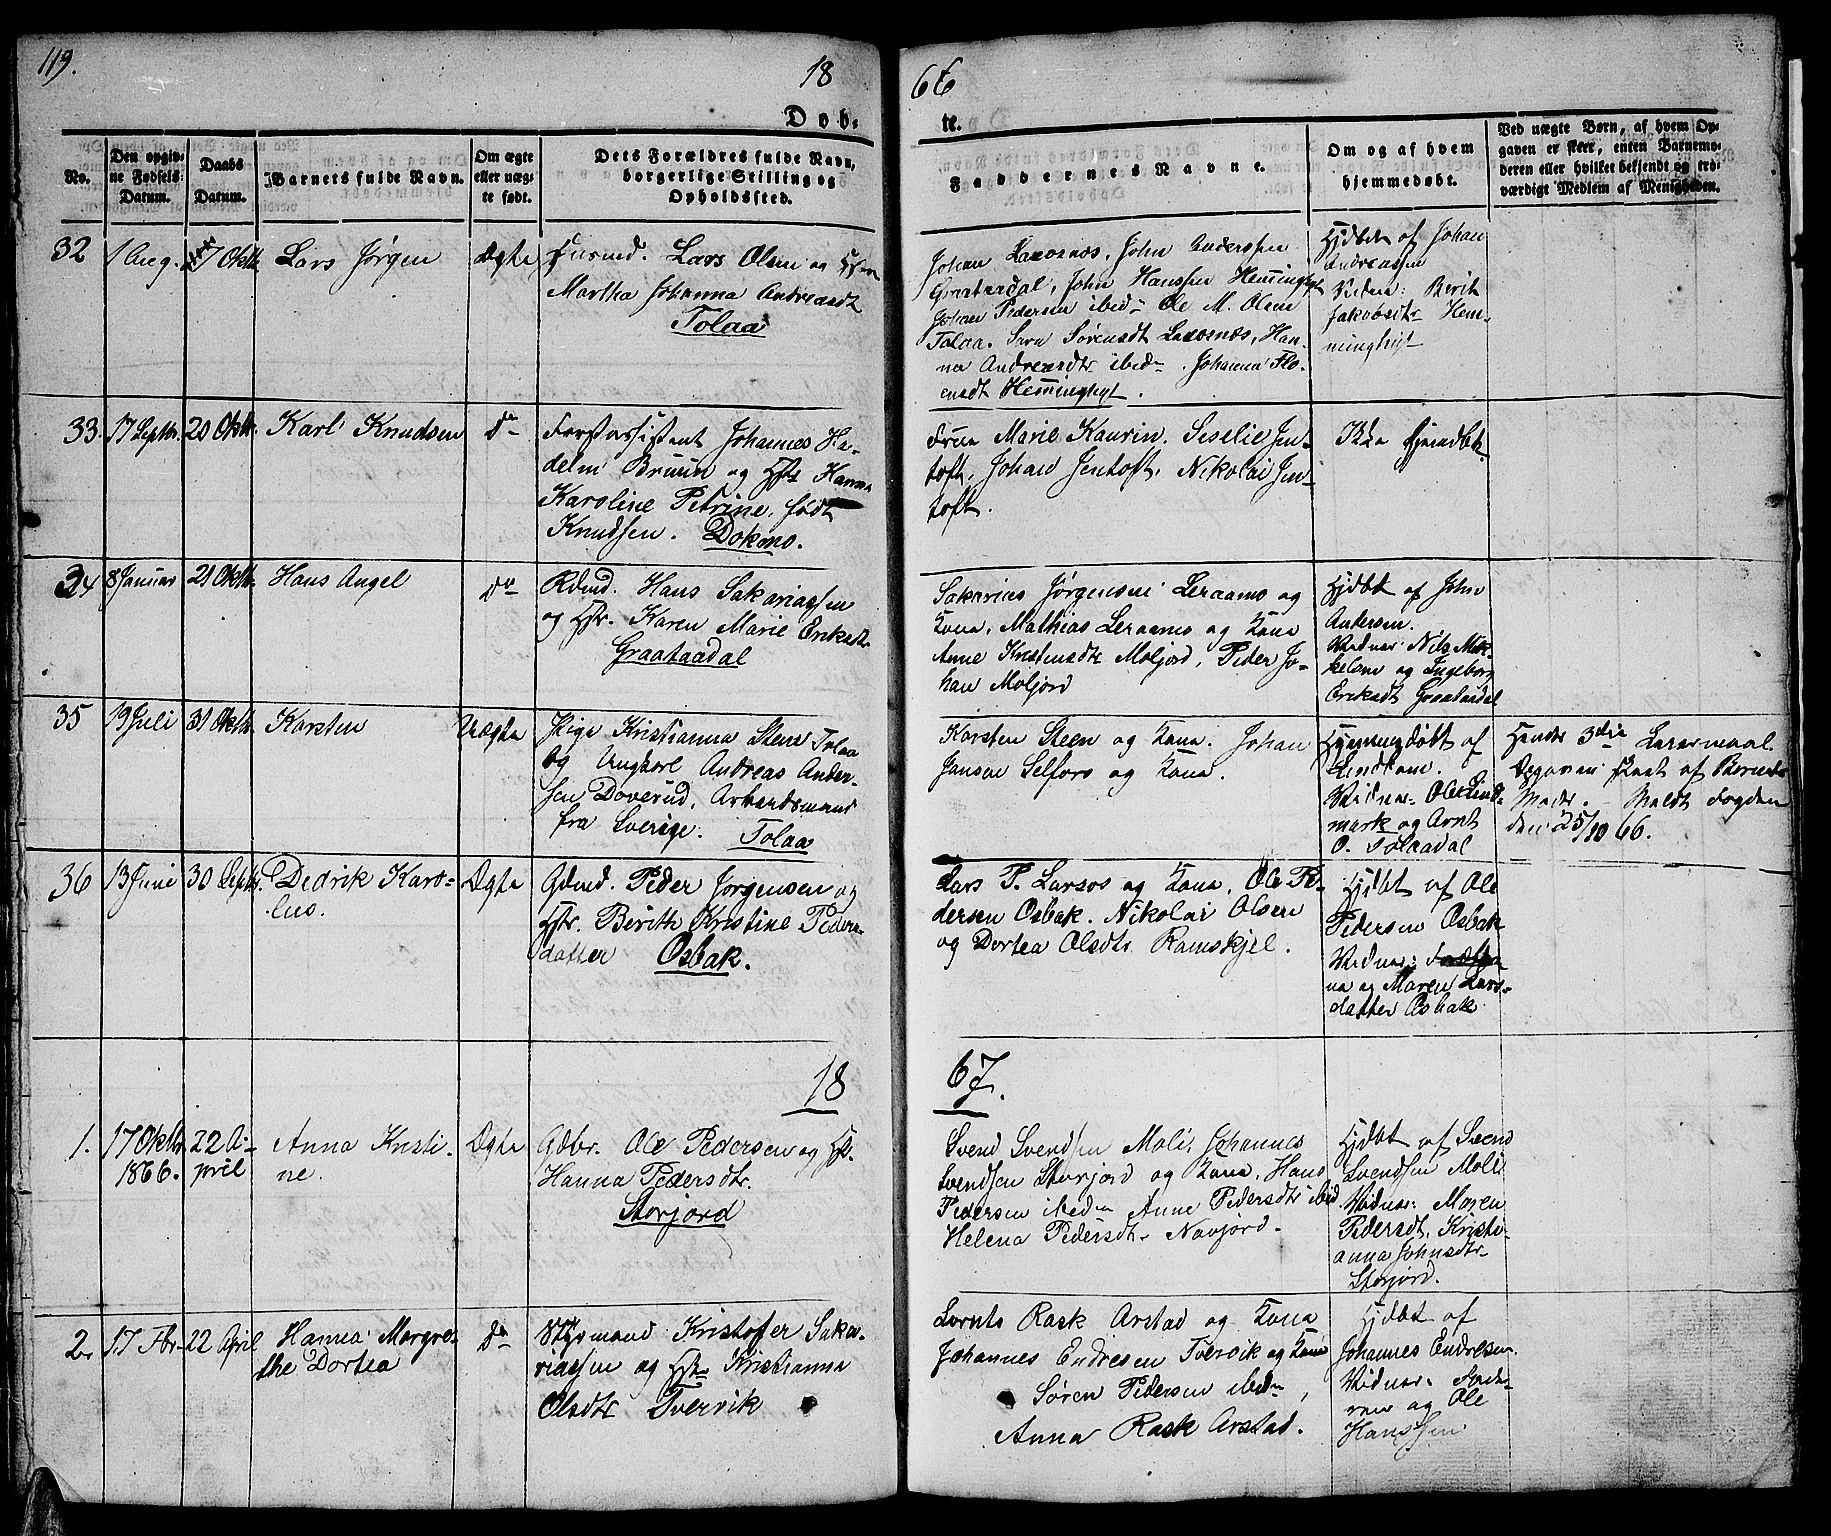 119.
18
66
Døb-
te.
No.
Den opgiv-
ne Fødsels-
Datum.
Daabs
Datum.
Barnets fulde Navn.
Om ægte
eller uæg-
te født.
Dets Forældres fulde Navn,
borgerlige Stilling og
Opholdsted.
Faddernes Navne.
Om og af hvem
hjemmedøbt.
Ved uægte Børn, af hvem Op-
gaven er skeet, enten Barnemo-
deren eller hvilket bekjendt og tro-
værdigt Medlem af Menigheden.
32
1 Aug.
7 Oktb.
Lars Jørgen
Ægte
Lars Olsen og Hstr
Martha Johanna Andreasdt
Tolaa
Johan Laxosnæs, John Anderssen
Graatardal, John Hanssen Hemminghyt
Johan Pedersen ibid. Ole M. Olsen
Tolaa. Sara Sørensdt Laxosnæs, Han-
na Andreasdtr ibid. Johanna
Hemminghyt.
Hjdbt af Johan
Andreassen
Vidner: Berit
Jakobsdtr Hem-
minghyt
33.
17 Septbr.
20 Oktbr.
Karl Knudsen
do
Forstassistent Johannes Ha-
delin Bruun og Hstr Hanna
Karoline Petrine, født
Knudsen. Dokmo.
Frue Marie Kaurin. Seselie Jen-
toft, Johan Jentoft, Nikolai Jen-
toft.
Ikke hjemdbt.
34
8 Januar
21 Oktbr.
Hans Angel
do
Hans Sakariassen
og Hstr. Karen Marie Eriksdtr
Graataadal
Sakarias Jørgensen Leraamo og
Kona, Mathias Leraamo og Kona
Anne Kristensdtr Moljord, Peder Jo-
han Moljord
Hjdbt af John
Andersen.
Vidner: Nils Mik-
kelsen og Ingeborg
Eriksdt Graataadal
35
19 Juli
31 Oktbr.
Karsten
Uægte
Pige Kristianna Stens Tolaa
og Ungkarl Andreas Ander-
sen Doverud, Arbeidsmand
fra Sverige. Tolaa
Karsten Steen og Kona. Johan
Jansen Selfors og Kona.
Hjemmedøbt af
Vidner: Ole Lind-
mark og Arnt
O. Tolaadal
Hendes 3die Leiermaal.
Opgaven skeet af Barnets
Moder. Meldt Fogden
den 25/10 66.
36
13 Juni
30 Septb.
Dedrik Karo-
lius.
Ægte
Gdmd. Peder Jørgensen og
Hstr. Berith Kristine Peders-
datter Osbak.
Lars P. Larsos og Kona, Ole Pe-
dersen Osbak. Nikolai Olsen
og Dortea Olsdtr Ramskjel.
Hjdbt af Ole
Pedersen Osbak
Vidner:
og Maren Lars-
datter Osbak
18
67.
1.
17 Oktbr.
1866.
22 A-
pril
Anna Kristi-
ne.
Ægte
Gdbr. Ole Pedersen og Hstr.
Hanna Pedersdtr.
Storjord
Svend Svendsen Moli, Johannes
Svendsen Storjord og Kona, Hans
Pedersen ibid. Anne Pedersdtr ibid
Helena Pedersdtr. Navjord.
Hjdbt af Svend
Svendsen Moli
Vidner: Maren
Pedersdt, Kristi-
anna Johnsdtr
Storjord.
2.
17 Fbr.
22 April
Hanna Margre-
the Dortea
do
Kristofer Saka-
riassen og Hstr Kristianna
Olsdtr Tverrik
Lornts Rask Arstad og Kona
Johannes Endresen Tverrik og Kona
Søren Pedersen ibid,
Anna Rask Arstad.
Hjdbt af
Johannes Endresen.
Vidner: Fade-
ren og Ole
Hanssen